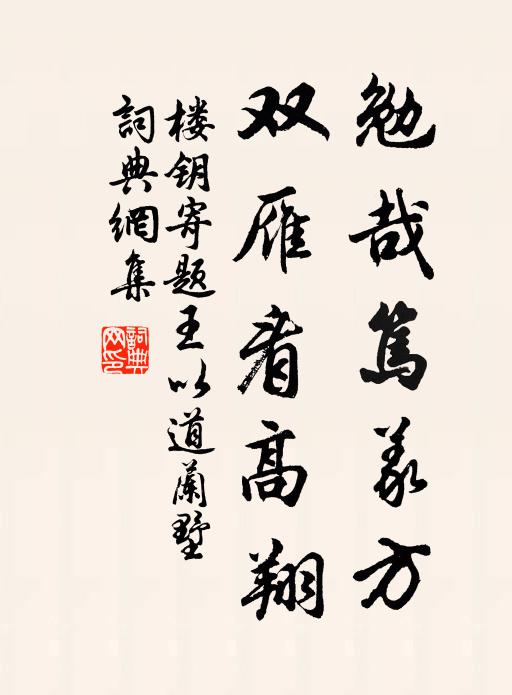 勉哉笃义方
双雁看高翔
楼钥寄题王以道兰墅
詞典網集
詞典网印